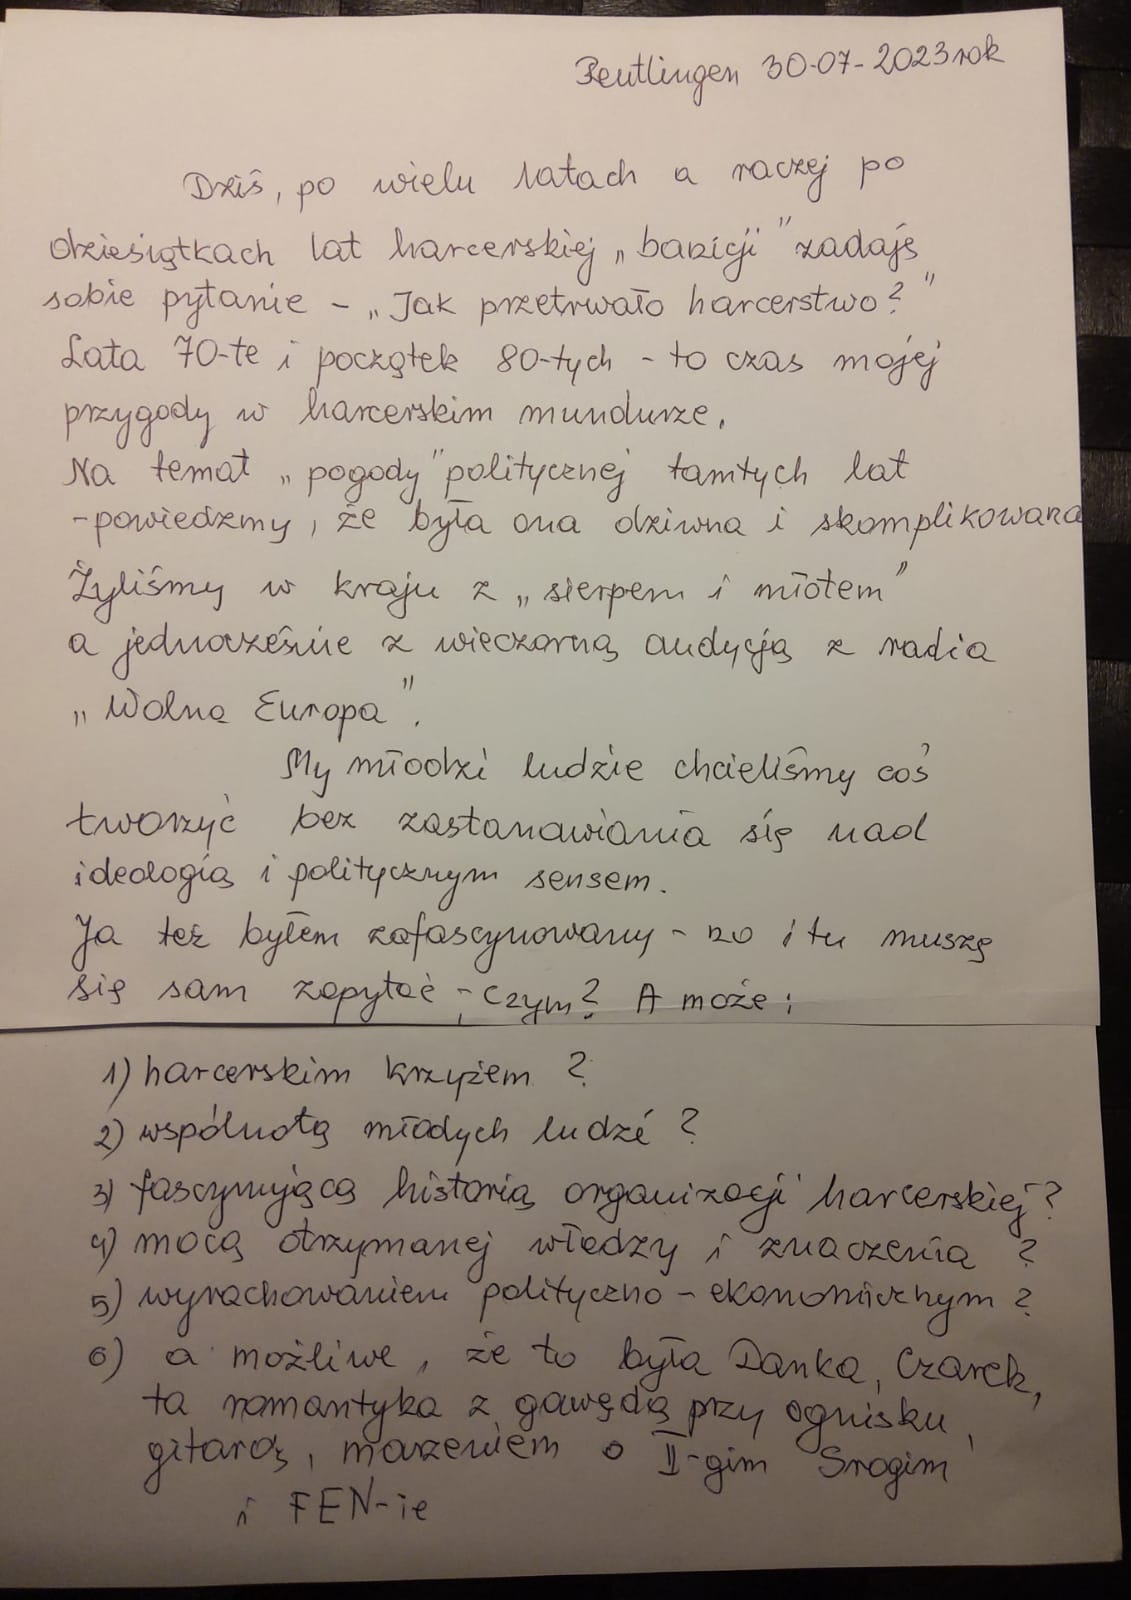 Reutlingen 30-07-2023 rok
Dziś, po wielu latach a raczej po
dziesiątkach lat harcerskiej „banicji” zadaję
sobie pytanie - „Jak przetrwało harcerstwo?”
Lata 70-te i początek 80-tych - to czas mojej
przygody w harcerskim mundurze.
Na temat „pogody” politycznej tamtych lat
- powiedzmy, że była ona dziwna i skomplikowana
Żyliśmy w kraju z „sierpem i młotem”
a jednocześnie z wieczorną audycją z radia
„Wolna Europa”.
My młodzi ludzie chcieliśmy coś
tworzyć bez zastanawiania się nad
ideologią i politycznym sensem.
Ja też byłem zafascynowany - no i tu muszę
się sam zapytać - czym? A może:
1) harcerskim krzyżem ?
2) wspólnotą młodych ludzi ?
3) fascynującą historią organizacji harcerskiej ?
4) mocą otrzymanej władzy i znaczenia ?
5) wyrachowaniem polityczno - ekonomicznym ?
6) a możliwe, że to była Danka, Czarek,
ta romantyka z gawędą przy ognisku,
gitarą, marzeniem o II-gim Srogim
i FEN-ie